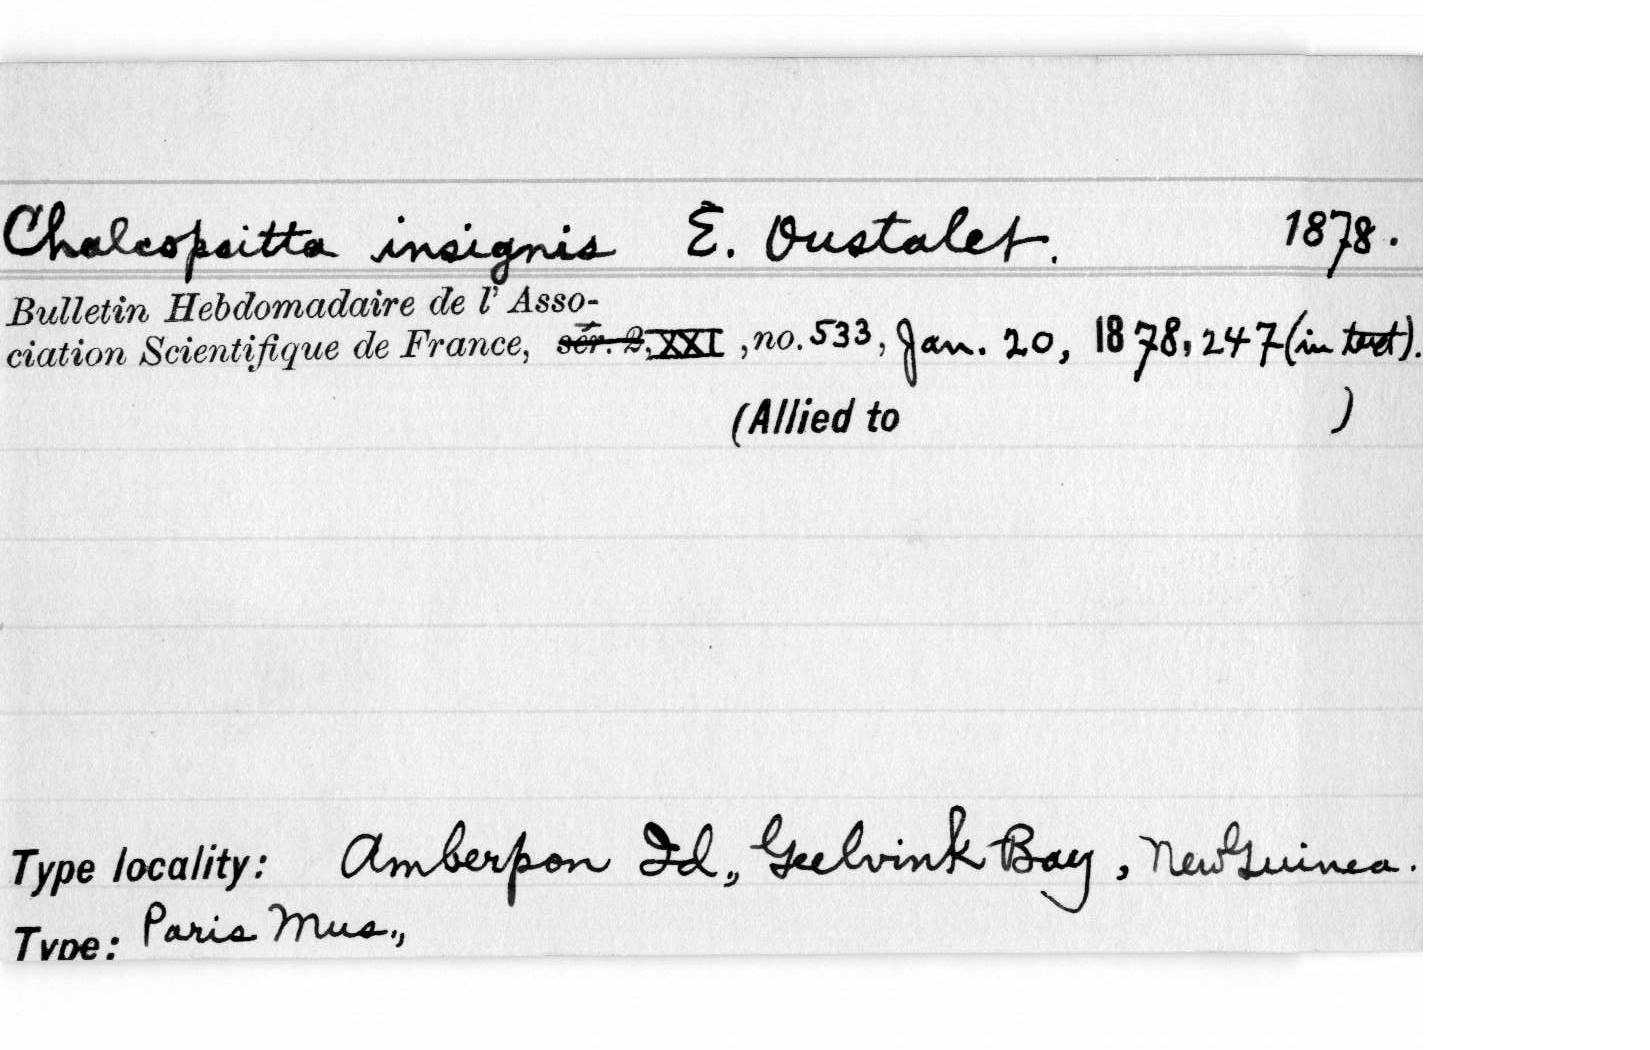 Chalcopsitta insignis E. Oustalet. 1878.
Bulletin Hebdomadaire de l' Asso-
ciation Scientifique de France, sér. 2, XXI, no. 533, Jan. 20, 1878, 247 (in text).
(Allied to )
Type locality: Amberpon Id., Geelvink Bay, New Guinea.
Type: Paris Mus.,